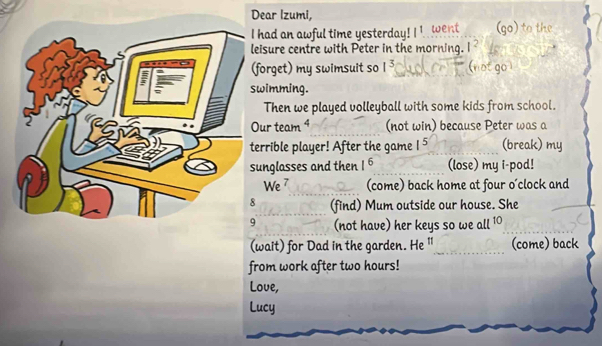 Dear Izumi,
I had an awful time yesterday! I 1 went (go) to the
leisure centre with Peter in the morning. I 2
(forget) my swimsuit so I 3 (not go)
swimming.
Then we played volleyball with some kids from school.
Our team 4 (not win) because Peter was a
terrible player! After the game I 5 (break) my
sunglasses and then I 6 (lose) my i-pod!
We 7 (come) back home at four o'clock and
8 (find) Mum outside our house. She
9 (not have) her keys so we all 10
(wait) for Dad in the garden. He 11 (come) back
from work after two hours!
Love,
Lucy